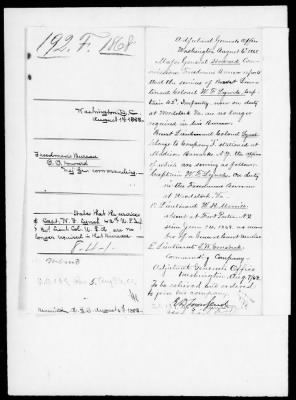 192. F. 1868
Washington D.C.
August 14 1868.
Freedmen's Bureau
O. O. Howard
Maj Gen commanding
States that the services
of Capt. W. F. Lynch 42nd U.S. Inf
Bvt Lieut Col. U.S.A. are no
longer required in that Bureau
Received A.G.O. August 1868.
Adjutant Generals Office
Washington August 6th 1868
Major General Howard Com-
missioner Freedmens Bureau reports
that the services of Brevet Lieu-
tenant Colonel W. F. Lynch, Cap-
tain 42d Infantry now on duty
at Woodstock Va. are no longer
required in his Bureau.
Brevet Lieutenant Colonel Lynch
belongs to Company I stationed at
Madison Barracks N.Y. the officers
of which are serving as follows
Captain W. F. Lynch. On duty
in the Freedmens Bureau
at Woodstock Va.
1st Lieutenant W. H. Merrill
absent at Fort Porter N.Y.
since June 1868. as mem-
ber of a General Court Martial
2d Lieutenant
Commanding Company
Adjutant Generals Office
Washington Aug 7/68
To be relieved and ordered
to join his company.
E. D. Townsend